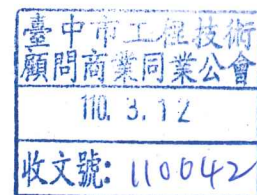 臺中市工程技術
顧問商業同業公會
110. 3. 12
收文號: 110642